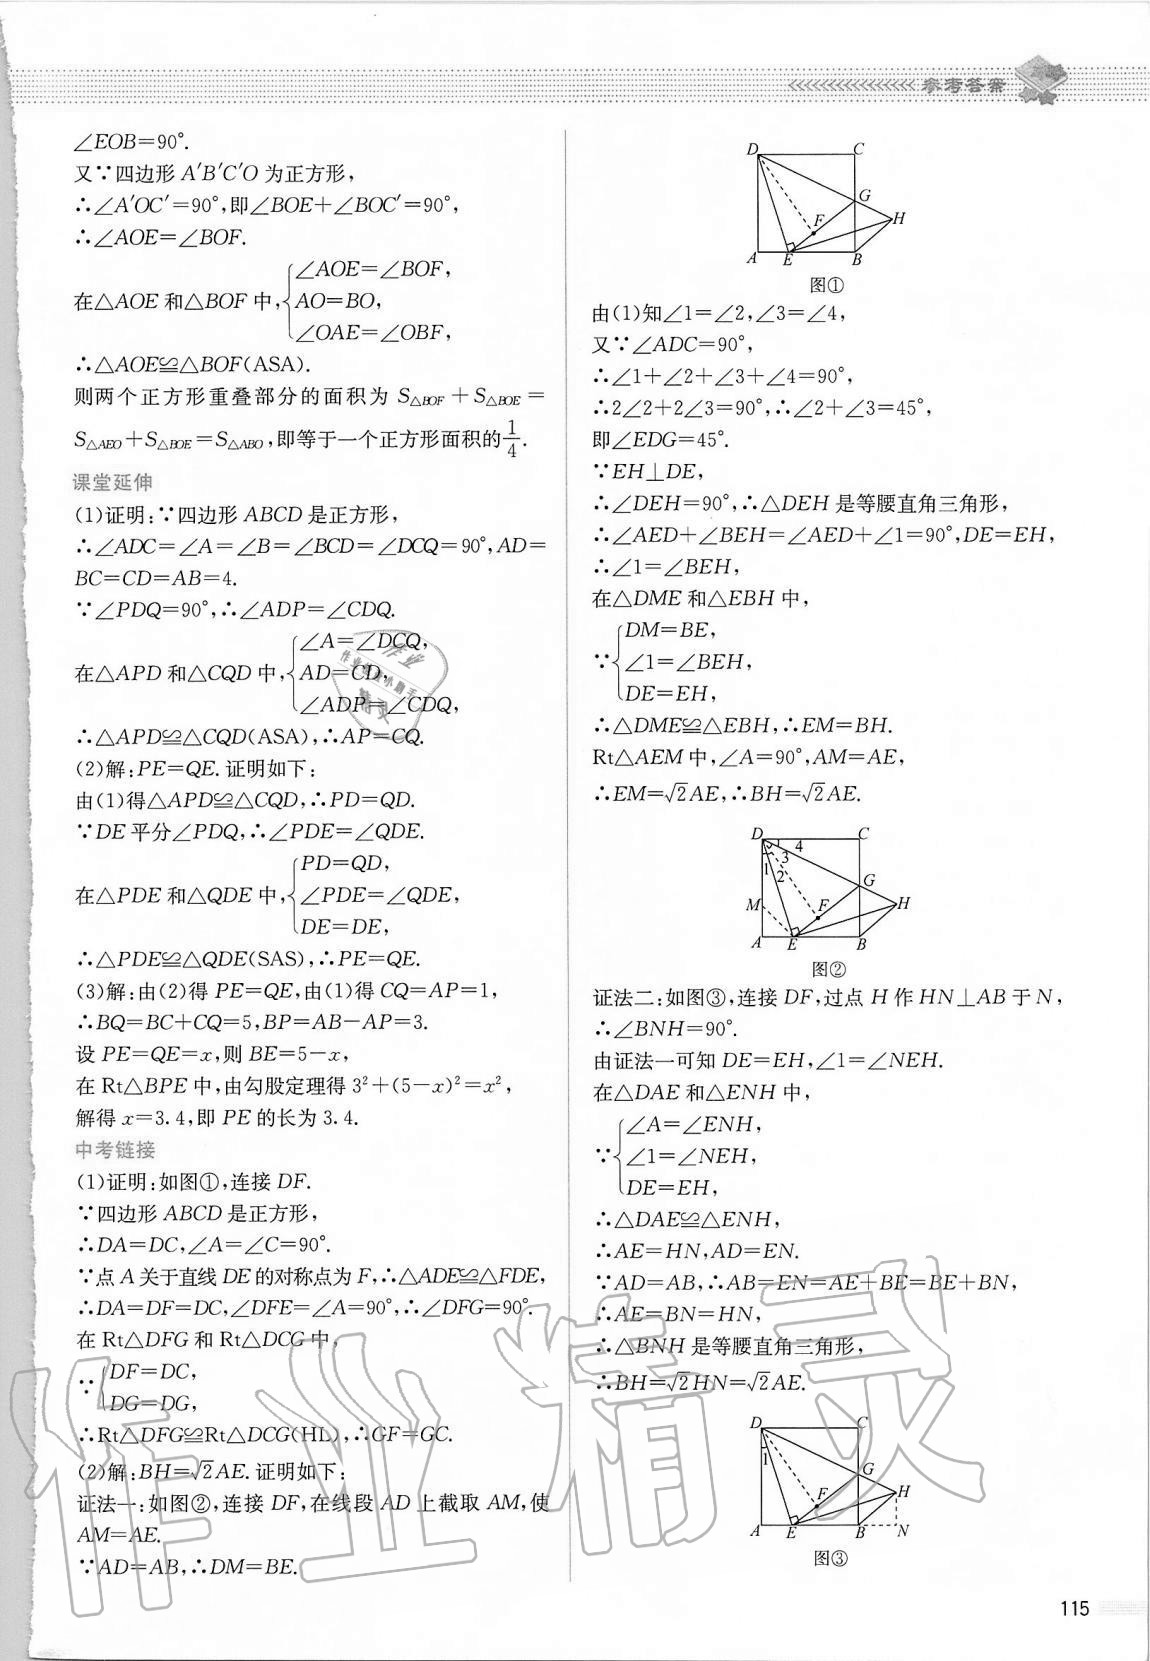 参考答案
∠EOB=90°.
又∵四边形 A′B′C′O 为正方形,
∴∠A′OC′=90°,即∠BOE+∠BOC′=90°,
∴∠AOE=∠BOF.
在△AOE 和△BOF 中,{∠AOE=∠BOF,
AO=BO,
∠OAE=∠OBF,
∴△AOE≌△BOF(ASA).
则两个正方形重叠部分的面积为 S△BOF+S△BOE=
S△AEO+S△BOE=S△ABO,即等于一个正方形面积的1/4.
课堂延伸
(1)证明:∵四边形 ABCD 是正方形,
∴∠ADC=∠A=∠B=∠BCD=∠DCQ=90°,AD=
BC=CD=AB=4.
∵∠PDQ=90°,∴∠ADP=∠CDQ.
在△APD 和△CQD 中,{∠A=∠DCQ,
AD=CD,
∠ADP=∠CDQ,
∴△APD≌△CQD(ASA),∴AP=CQ.
(2)解:PE=QE.证明如下:
由(1)得△APD≌△CQD,∴PD=QD.
∵DE 平分∠PDQ,∴∠PDE=∠QDE.
在△PDE 和△QDE 中,{PD=QD,
∠PDE=∠QDE,
DE=DE,
∴△PDE≌△QDE(SAS),∴PE=QE.
(3)解:由(2)得 PE=QE,由(1)得 CQ=AP=1,
∴BQ=BC+CQ=5,BP=AB−AP=3.
设 PE=QE=x,则 BE=5−x,
在 Rt△BPE 中,由勾股定理得 3²+(5−x)²=x²,
解得 x=3.4,即 PE 的长为 3.4.
中考链接
(1)证明:如图①,连接 DF.
∵四边形 ABCD 是正方形,
∴DA=DC,∠A=∠C=90°.
∵点 A 关于直线 DE 的对称点为 F,∴△ADE≌△FDE,
∴DA=DF=DC,∠DFE=∠A=90°,∴∠DFG=90°.
在 Rt△DFG 和 Rt△DCG 中,
∵{DF=DC,
DG=DG,
∴Rt△DFG≌Rt△DCG(HL),∴GF=GC.
(2)解:BH=√2AE.证明如下:
证法一:如图②,连接 DF,在线段 AD 上截取 AM,使
AM=AE.
∵AD=AB,∴DM=BE.
D C G H F A E B
图①
由(1)知∠1=∠2,∠3=∠4,
又∵∠ADC=90°,
∴∠1+∠2+∠3+∠4=90°,
∴2∠2+2∠3=90°,∴∠2+∠3=45°,
即∠EDG=45°.
∵EH⊥DE,
∴∠DEH=90°,∴△DEH 是等腰直角三角形,
∴∠AED+∠BEH=∠AED+∠1=90°,DE=EH,
∴∠1=∠BEH,
在△DME 和△EBH 中,
∵{DM=BE,
∠1=∠BEH,
DE=EH,
∴△DME≌△EBH,∴EM=BH.
Rt△AEM 中,∠A=90°,AM=AE,
∴EM=√2AE,∴BH=√2AE.
D C 4 3 1 2 G M F H A E B
图②
证法二:如图③,连接 DF,过点 H 作 HN⊥AB 于 N,
∴∠BNH=90°.
由证法一可知 DE=EH,∠1=∠NEH.
在△DAE 和△ENH 中,
∵{∠A=∠ENH,
∠1=∠NEH,
DE=EH,
∴△DAE≌△ENH,
∴AE=HN,AD=EN.
∵AD=AB,∴AB=EN=AE+BE=BE+BN,
∴AE=BN=HN,
∴△BNH 是等腰直角三角形,
∴BH=√2HN=√2AE.
D C 1 G H F A E B N
图③
115
作业精灵